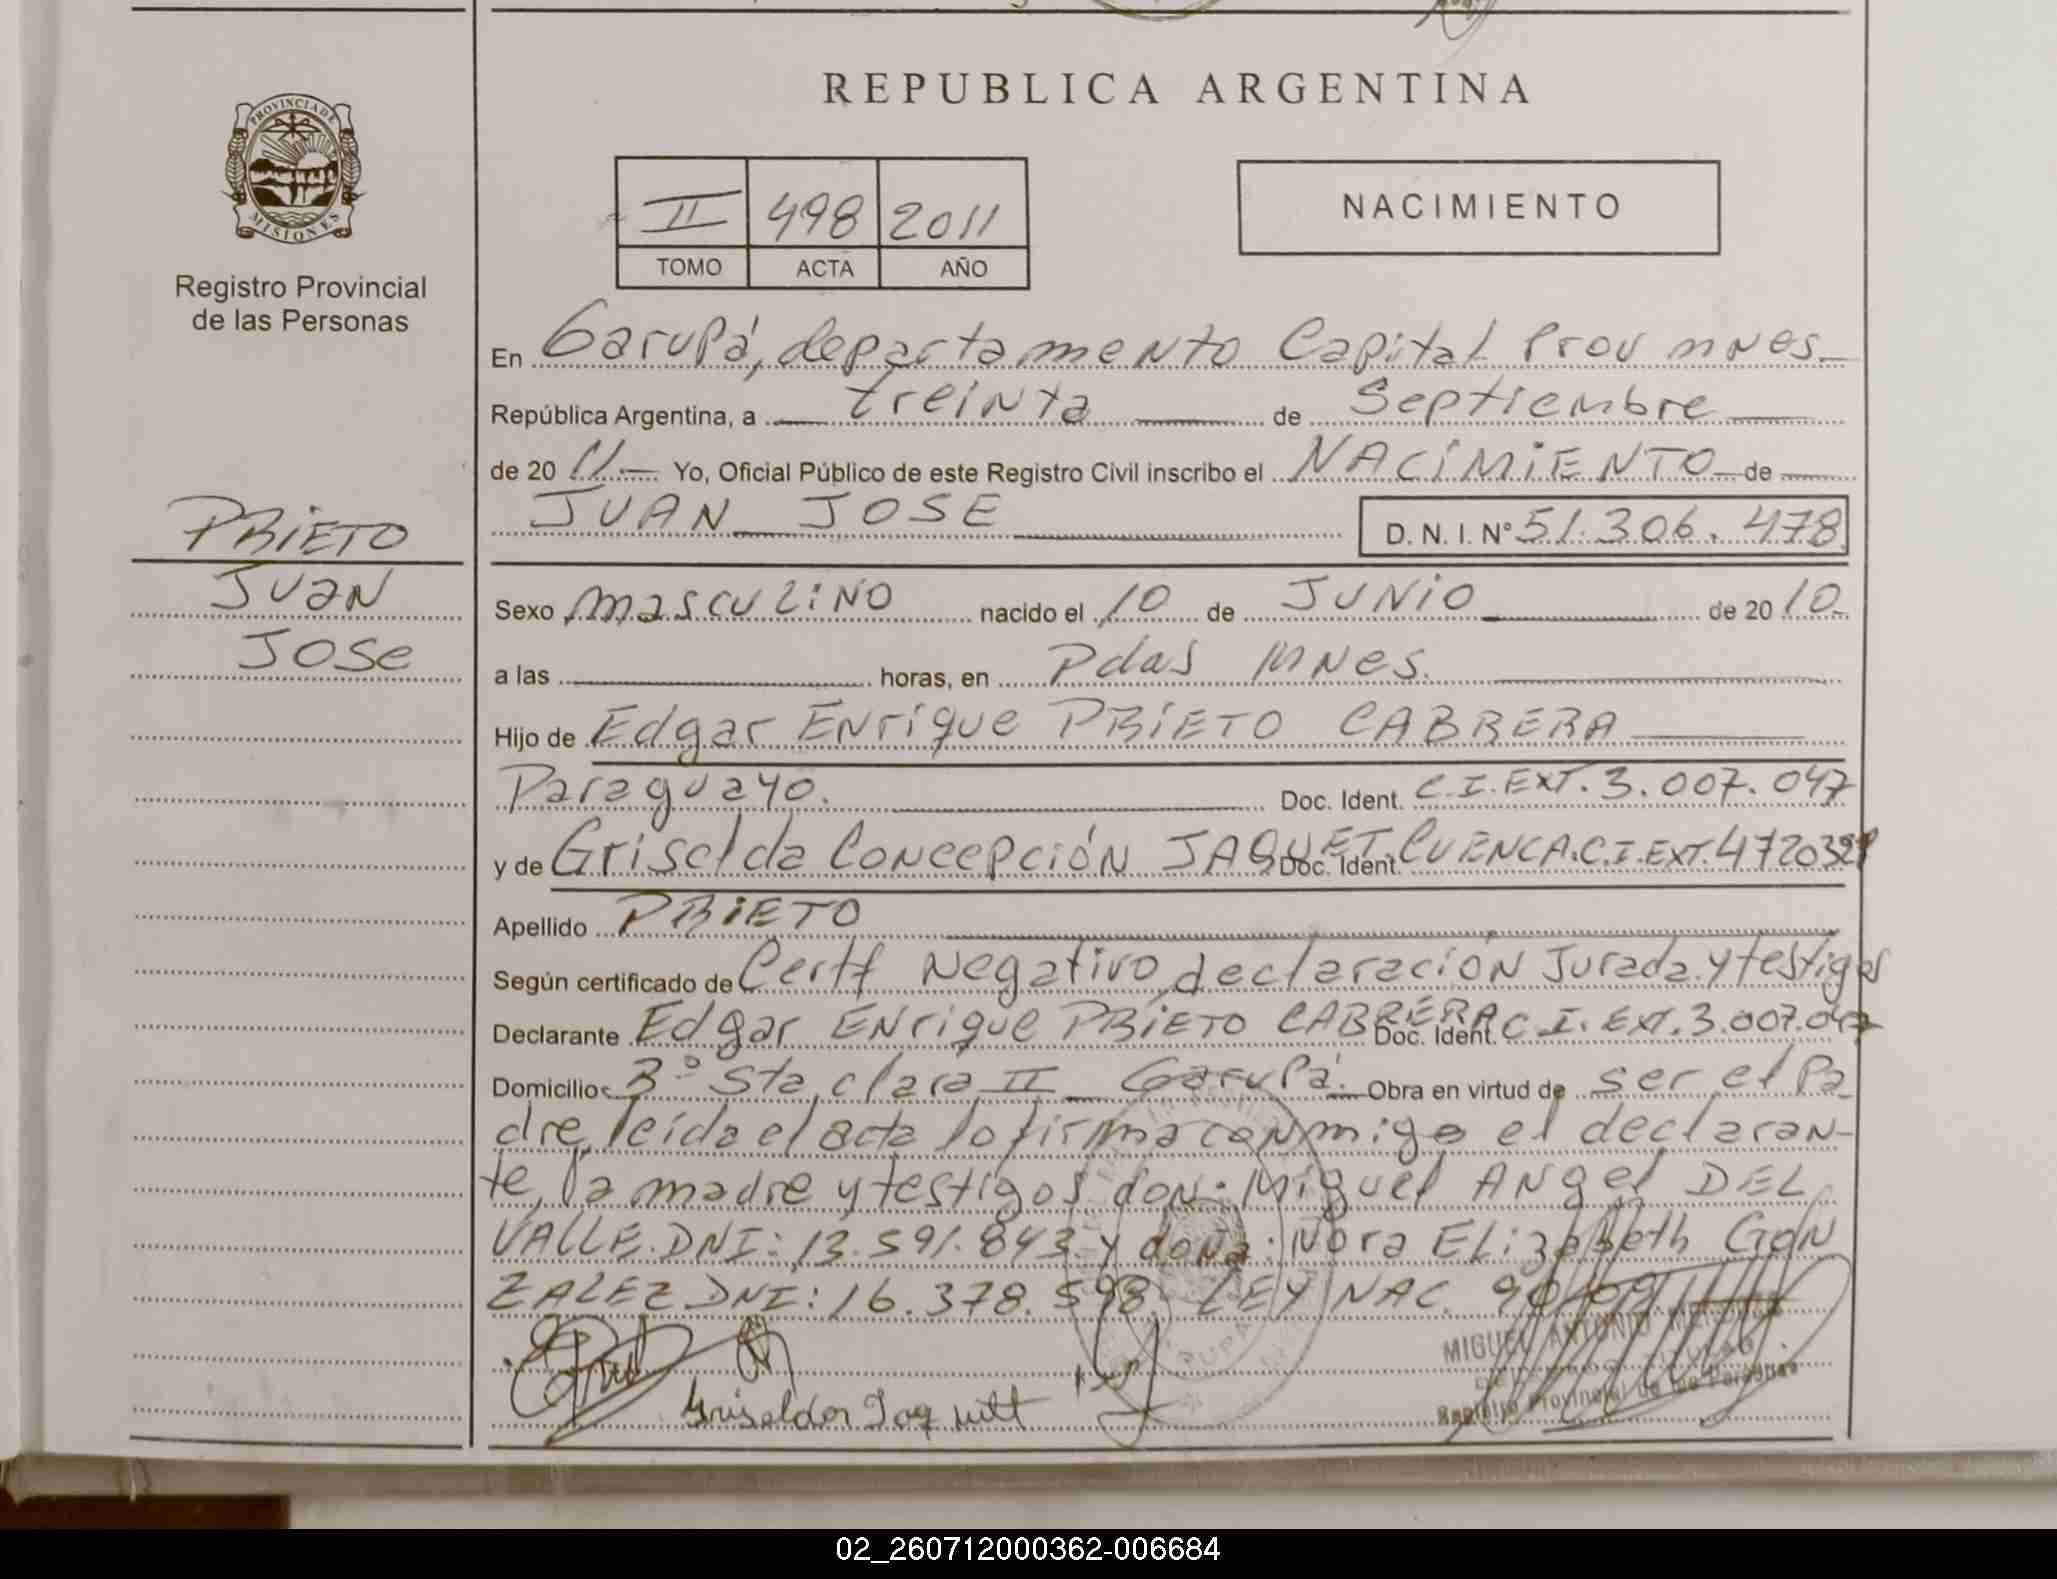 REPUBLICA ARGENTINA
PROVINCIA DE
MISIONES
Registro Provincial
de las Personas
II 498 2011
TOMO ACTA AÑO
NACIMIENTO
En Garupá, departamento Capital Prov mnes
República Argentina, a treinta de Septiembre
de 20 11 Yo, Oficial Público de este Registro Civil inscribo el NACIMIENTO de
JUAN JOSE D. N. I. Nº 51.306.478
PRIETO
Juan
Jose
Sexo masculino nacido el 10 de JUNIO de 20 10
a las horas, en Pdas mnes.
Hijo de Edgar Enrique PRIETO CABRERA
Paraguayo. Doc. Ident. C.I.EXT.3.007.047
y de Griselda Concepción JAQUET CUENCA.C.I.EXT. Doc. Ident.
Apellido PRIETO
Según certificado de Certf Negativo, declaración Jurada y testigos
Declarante Edgar Enrique PRIETO CABRERA Doc. Ident. C.I. EXT.3.007.047
Domicilio Bº Sta clara II Garupá. Obra en virtud de ser el Pa
dre, leída el acta lo firma conmigo el declaran-
te, la madre y testigos don: Miguel Angel DEL
VALLE.DNI: 13.591.843 y doña: Nora Elizabeth GON
ZALEZ DNI: 16.378.598. LEY NAC.
MIGUEL ANTONIO
Registro Provincial de las Personas
02_260712000362-006684